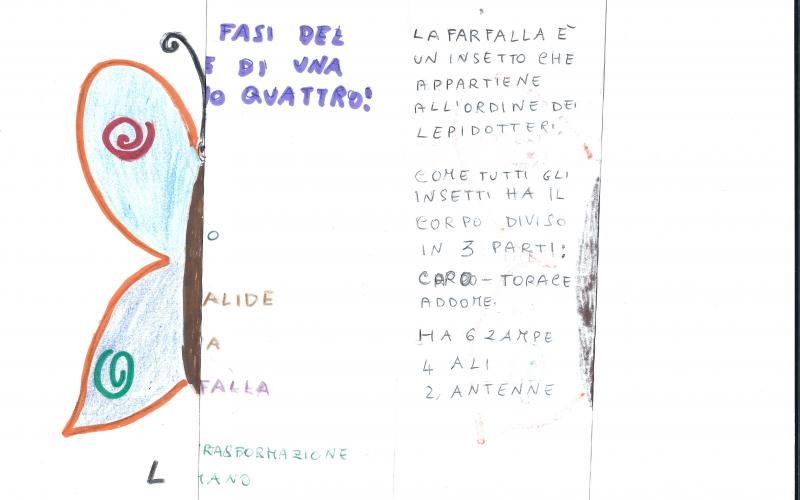 FASI DEL
E DI UNA
NO QUATTRO!
O
ALIDE
A
FALLA
RASFORMAZIONE
MANO
L
LA FARFALLA È
UN INSETTO CHE
APPARTIENE
ALL'ORDINE DEI
LEPIDOTTERI.
COME TUTTI GLI
INSETTI HA IL
CORPO DIVISO
IN 3 PARTI:
CAPO - TORACE
ADDOME.
HA 6 ZAMPE
4 ALI
2, ANTENNE